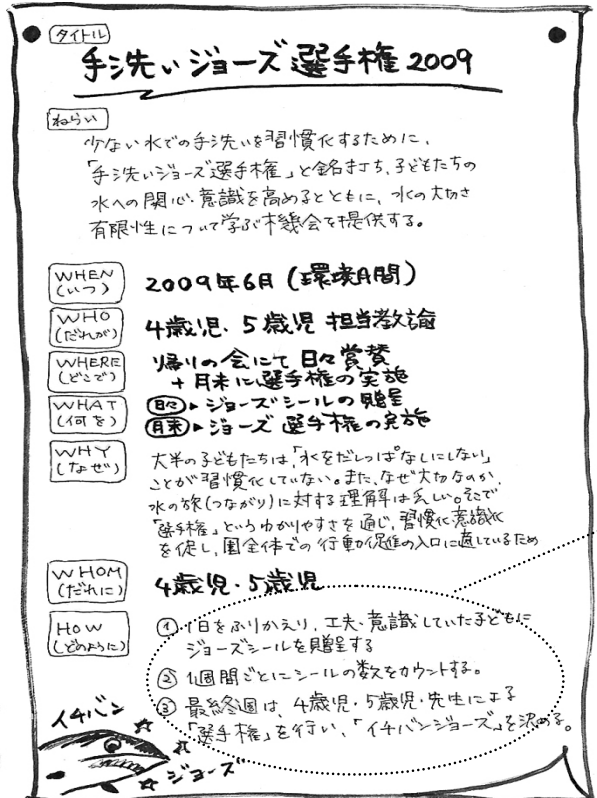 タイトル
手洗いジョーズ選手権2009
ねらい
少ない水での手洗いを習慣化するために、
「手洗いジョーズ選手権」と銘打ち、子どもたちの
水への関心・意識を高めるとともに、水の大切さ
有限性について学ぶ機会を提供する。
WHEN
(いつ)
2009年6月(環境月間)
WHO
(だれが)
4歳児・5歳児 担当教諭
WHERE
(どこで)
帰りの会にて日々賞賛
+月末に選手権の実施
WHAT
(何を)
日々▶ジョーズシールの贈呈
月末▶ジョーズ選手権の実施
WHY
(なぜ)
大半の子どもたちは、「水をだしっぱなしにしない」
ことが習慣化していない。また、なぜ大切なのか、
水の旅(つながり)に対する理解は乏しい。そこで
「選手権」というわかりやすさを通じ、習慣化意識化
を促し、園全体での行動促進の入口に適しているため
WHOM
(だれに)
4歳児・5歳児
HOW
(どのように)
① 1日をふりかえり、工夫・意識していた子どもに
ジョーズシールを贈呈する
② 1週間ごとにシールの数をカウントする。
③ 最終週は、4歳児・5歳児・先生による
「選手権」を行い、「イチバンジョーズ」を決める。
イチバン
ジョーズ